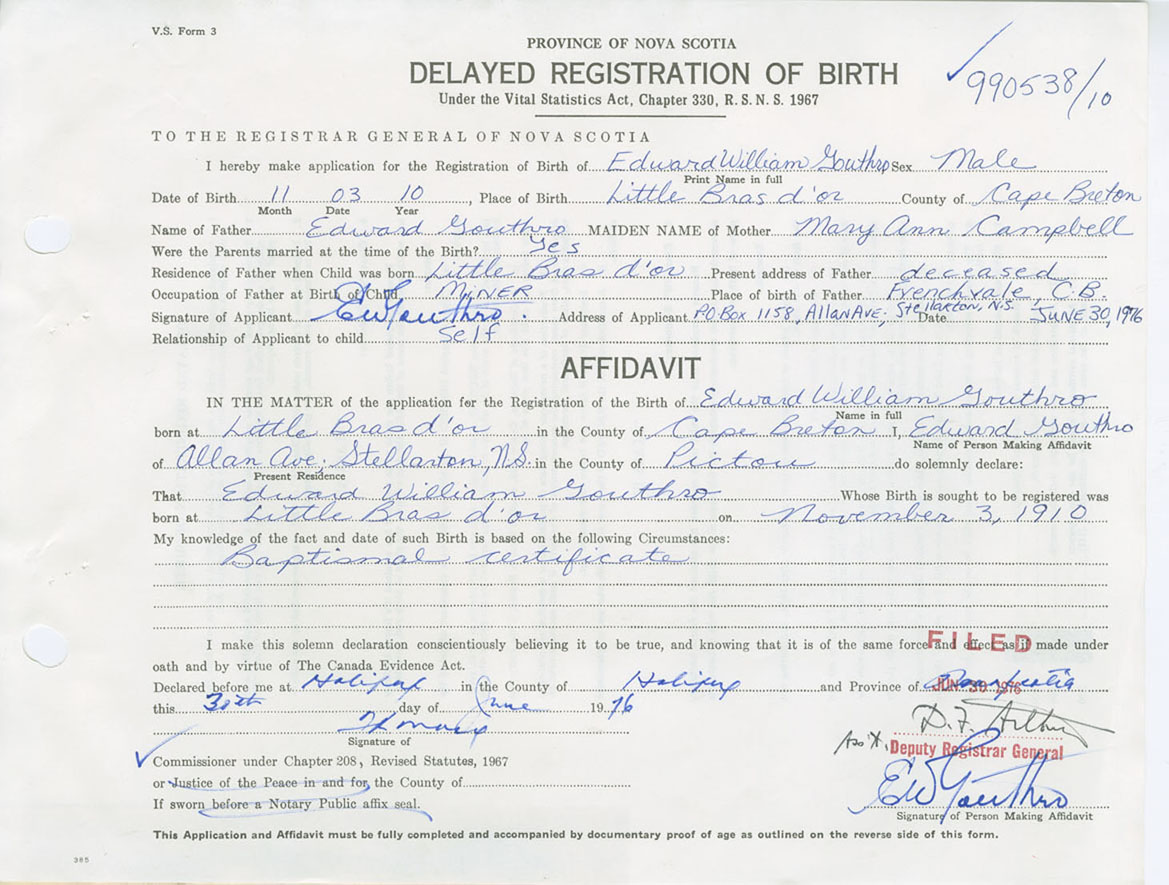 V.S. Form 3
PROVINCE OF NOVA SCOTIA
DELAYED REGISTRATION OF BIRTH
990538/10
Under the Vital Statistics Act, Chapter 330, R.S.N.S. 1967
TO THE REGISTRAR GENERAL OF NOVA SCOTIA
I hereby make application for the Registration of Birth of Edward William Gouthro Sex Male
Print Name in full
Date of Birth 11 03 10, Place of Birth Little Bras d'or County of Cape Breton
Month Date Year
Name of Father Edward Gouthro MAIDEN NAME of Mother Mary Ann Campbell
Were the Parents married at the time of the Birth? Yes
Residence of Father when Child was born Little Bras d'or Present address of Father deceased
Occupation of Father at Birth of Child MINER Place of birth of Father Frenchvale, C.B.
Signature of Applicant EW Gouthro. Address of Applicant PO BOX 1158, Allan Ave; Stellarton, N.S. Date JUNE 30, 1976
Relationship of Applicant to child self
AFFIDAVIT
IN THE MATTER of the application for the Registration of the Birth of Edward William Gouthro
Name in full
born at Little Bras d'or in the County of Cape Breton I, Edward Gouthro
Name of Person Making Affidavit
of Allan Ave; Stellarton, N.S. in the County of Pictou do solemnly declare:
Present Residence
That Edward William Gouthro Whose Birth is sought to be registered was
born at Little Bras d'or on November 3, 1910
My knowledge of the fact and date of such Birth is based on the following Circumstances:
Baptismal certificate
I make this solemn declaration conscientiously believing it to be true, and knowing that it is of the same force and effect as if made under
FILED
oath and by virtue of The Canada Evidence Act.
Declared before me at Halifax in the County of Halifax and Province of Nova Scotia
JUN 30 1976
this 30th day of June 1976
D.F. Arthur
Signature of
Ass't. Deputy Registrar General
Commissioner under Chapter 208, Revised Statutes, 1967
or Justice of the Peace in and for the County of
If sworn before a Notary Public affix seal.
EW Gouthro
Signature of Person Making Affidavit
This Application and Affidavit must be fully completed and accompanied by documentary proof of age as outlined on the reverse side of this form.
385